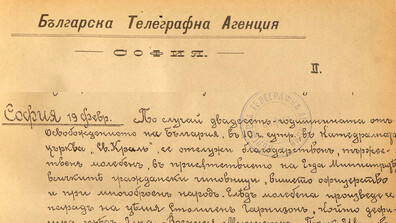 Българска Телеграфна Агенция
СОФИЯ.
II.
София 19 Февр. По случай двадесть-годишнината отъ
Освобождението на България, въ 10 ч. сутр. въ Катедралната
църква „Св. Краль“, се отслужи благодарственъ, тържес-
твенъ молебенъ, въ присѫтствието на Г.да Министритѣ
всичкитѣ граждански чиновници, висшето офицерство
и при многоброенъ народъ. Слѣдъ молебена произведе се
парадъ на цѣлия столиченъ гарнизонъ, който дефи-
ТЕЛЕГРАФНА